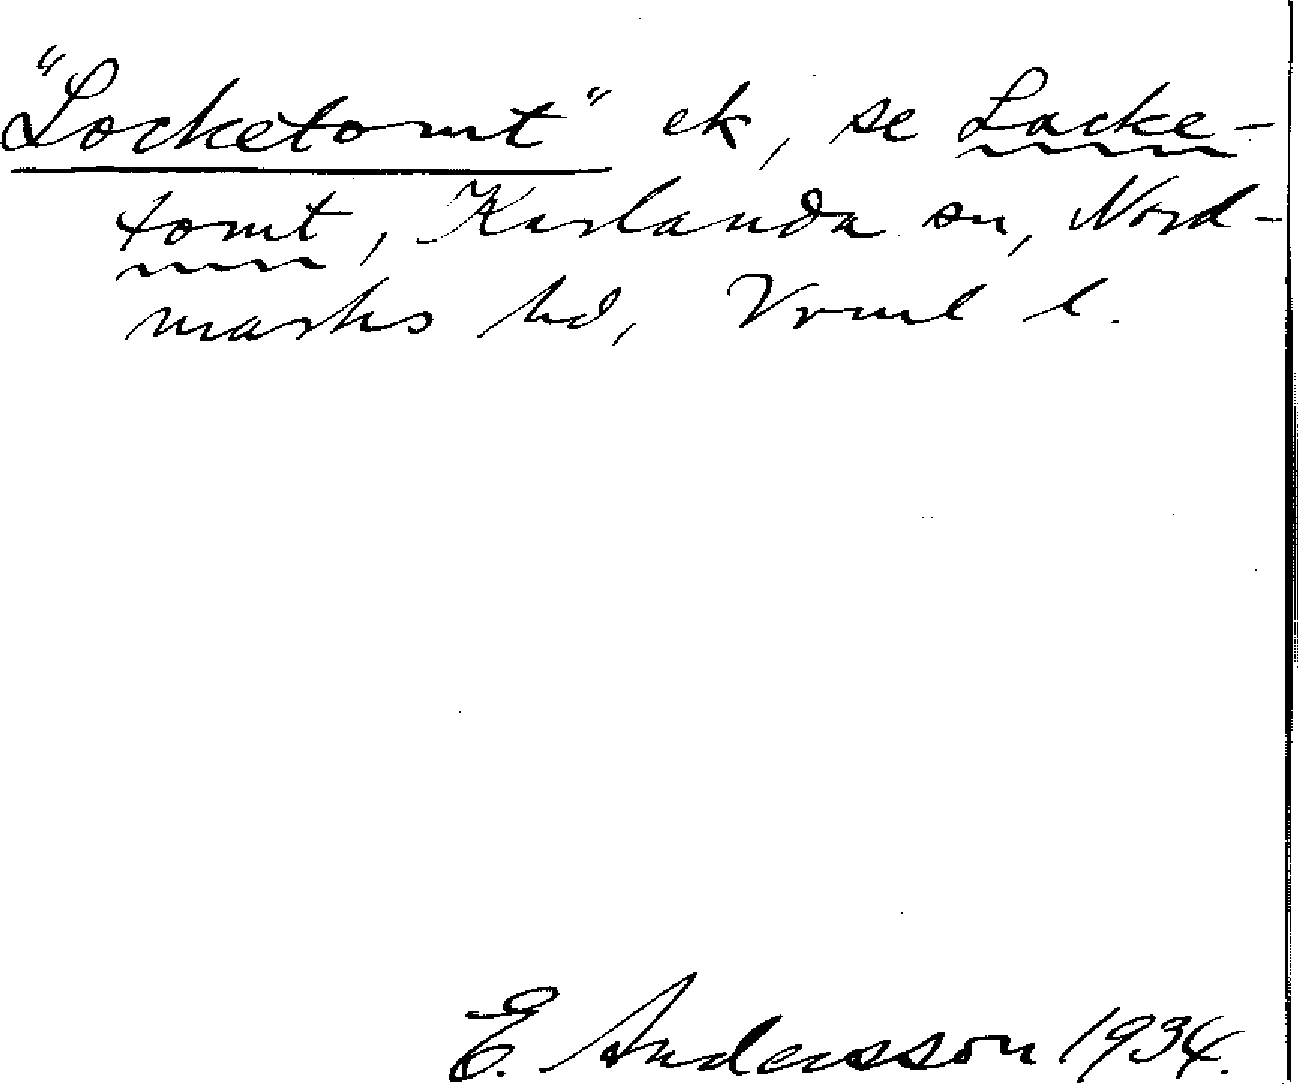 "Locketomt" ek, se Lacke-
tomt, Karlanda sn, Nord-
marks hd, Vrml l.
E. Andersson 1934.